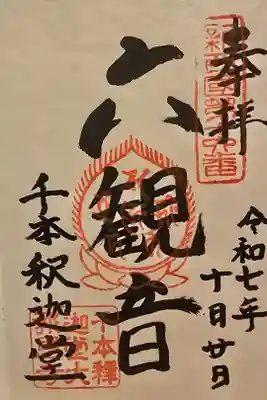 奉拝
令和七年
十月廿日
六観音
千本釈迦堂
千本釋
迦堂大
報恩寺